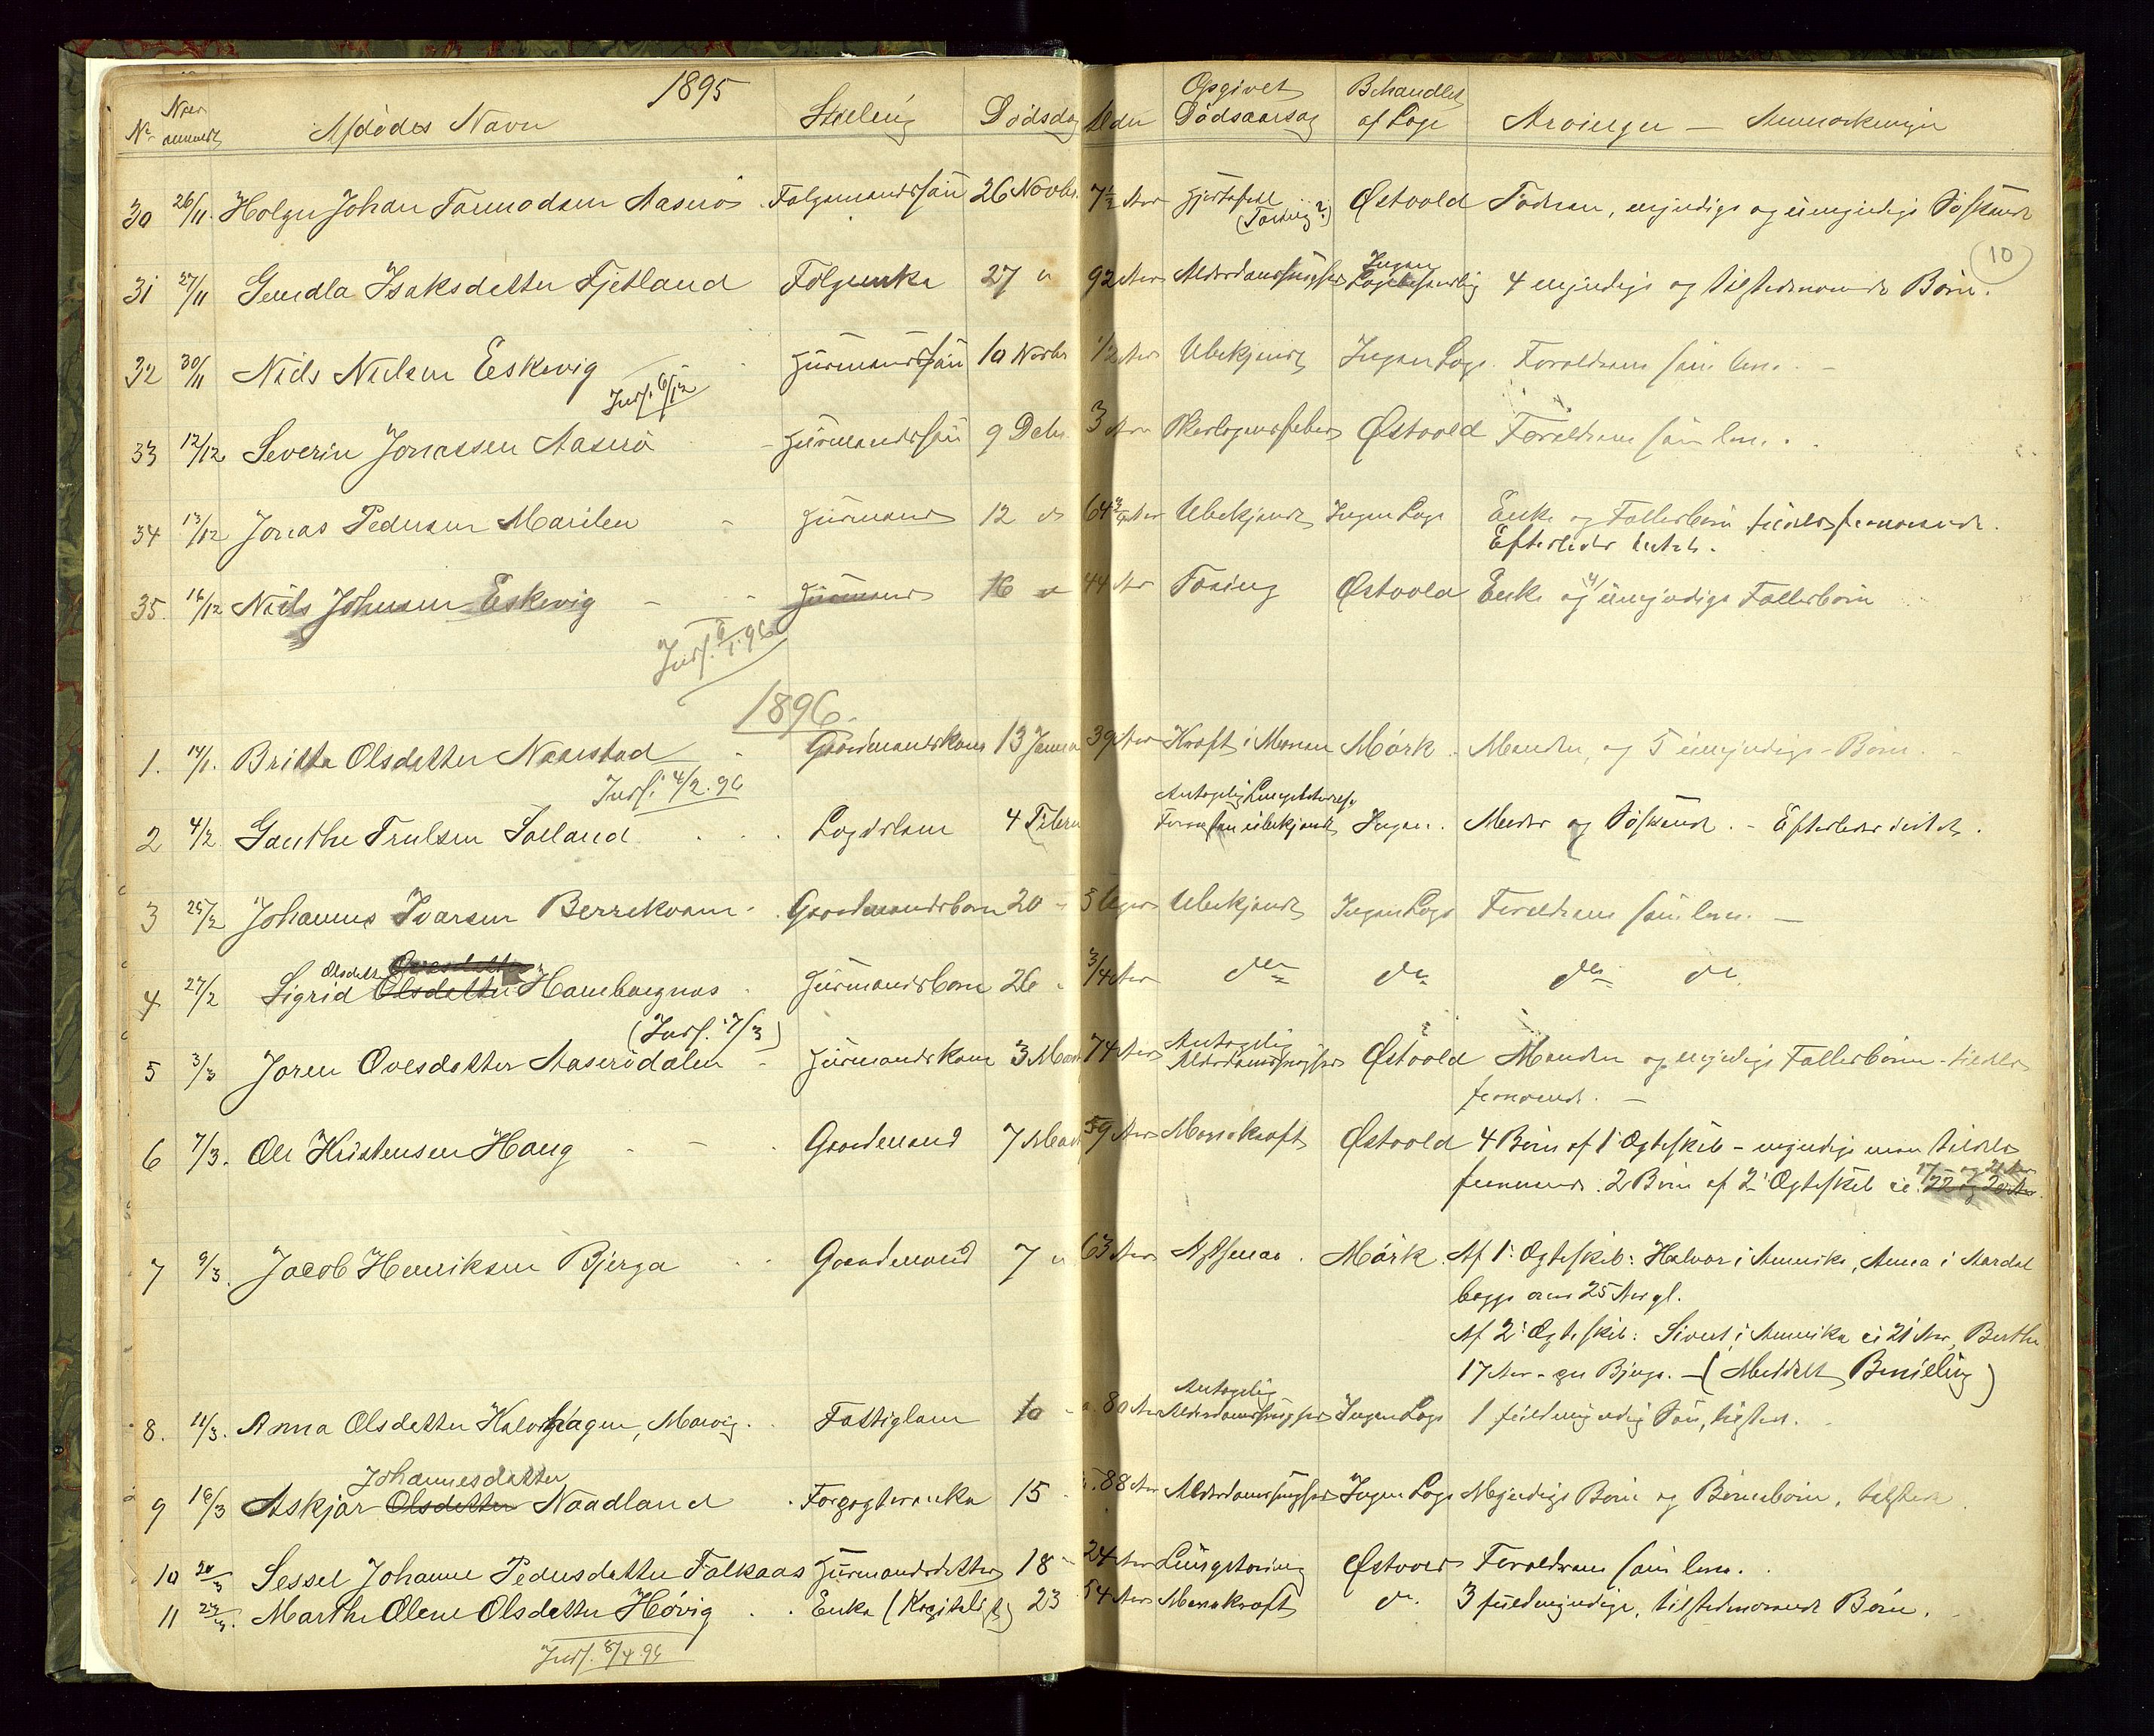 1895
Nr Naar anmeldt Afdödes Navn Stilling Dödsdag Alder Opgivet Dödsaarsag Behandlet af Læge Arvinger — Anmærkninger
10
30 26/11 Holger Johan Tarmodsen Aaserö Folgemandssön 26 Novbr. 7½ Aar Hjertefeil (Tæring?) Østvold Fadren, myndige og umyndige Söskende
31 27/11 Gundla Isaksdatter Fjetland Folgeenke 27 " 92 Aar Alderdomssvaghed Ingen Lægebehandling 4 myndige og tilstedeværende Börn.
32 30/11 Niels Nielsen Eskevig Husmandssön 10 Novbr 1/2 Aar Ubekjendt Ingen Læge. Forældrene som leve.
Inds. 6/12
33 12/12 Severin Jonassen Aaserö Husmandssön 9 Debr 3 Aar Skarlagensfeber Østvold Forældrene som leve.
34 13/12 Jonas Pedersen Marilen Husmand 12 " 64 Aar Ubekjendt Ingen Læge Enke og Fællesbörn tildels fraværende.
Efterlader intet.
35. 16/12 Niels Johnsen Eskevig Husmand 16 " 44 Aar Tæring Østvold Enke og 4 umyndige Fællesbörn
Inds. 6/1.96
1896.
1. 14/1. Britta Olsdatter Naarstad Gaardmandskone 13 Januar 39 Aar Kræft i Maven Mörk. Manden, og 5 umyndige Börn.
Inds. 4/2.96
2 4/2 Gauthe Trulsen Sælland Lægdslem 4 Februar Antagelig Lungebetændelse Forövrigt ubekjendt Ingen. Moder og Söskende. - Efterlader intet.
3 25/2 Johannes Ivarsen Berrekvam Gaardmandsbarn 20 " 3 Uger Ubekjendt Ingen Læge Forældrene som leve. —
4 27/2 Sigrid Olsdatter Olsdatter Hambargnæs Husmandsbarn 26 " 3/4 Aar do do do do
(Inds. 7/3)
5 3/3 Joren Ovesdatter Aaserödalen Husmandskone 3 Marts 74 Aar Antagelig Alderdomssvaghed Østvold Manden og myndige Fællesbörn - tildels
fraværende. —
6 7/3. Ole Kristensen Haug Gaardmand 7 Marts 59 Aar Mavekræft Østvold 4 Börn af 1' Ægteskab - myndige men tildels
fraværende. 2 Börn af 2' Ægteskab 17 og 21 Aar 22 og 20 Aar.
7 9/3. Jacob Henriksen Bjerga Gaardmand 7 " 63 Aar Mörk. Af 1' Ægteskab: Halvor i Amerika, Anna i Aardal
begge over 25 Aar gl.
Af 2' Ægteskab: Sivert i Amerika 21 Aar, Berthe
17 Aar - paa Bjerga. — (Meddelt Bevilling)
8. 11/3. Anna Olsdatter Kalvehagen, Marvig. Fattiglem 10 80 Aar Antagelig Alderdomssvaghed Ingen Læge 1 fuldmyndig Sön, tilstede.
9 16/3 Askjær Olsdatter Johannesdatter Naadland Forpagterenke 15 88 Aar Alderdomssvaghed Ingen Læge Myndige Börn og Börnebörn, tilstede.
10 20/3 Sessel Johanne Pedersdatter Falkaas Husmandsdatter 18 " 24 Aar Lungetæring Østvold Forældrene som leve.
11 24/3. Marthe Olene Olsdatter Hövig Enke (Kapitalist) 23 54 Aar Mavekræft do. 3 fuldmyndige, tilstedeværende Börn.
Inds. 8/4.96